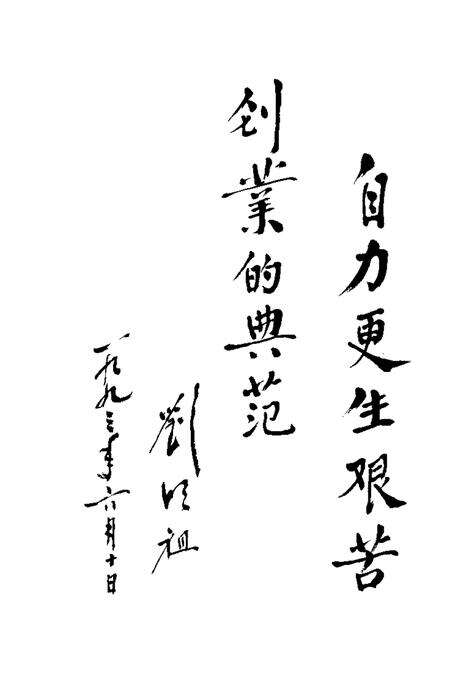 自力更生艰苦
创業的典范
劉明祖
一九九三年六月十日